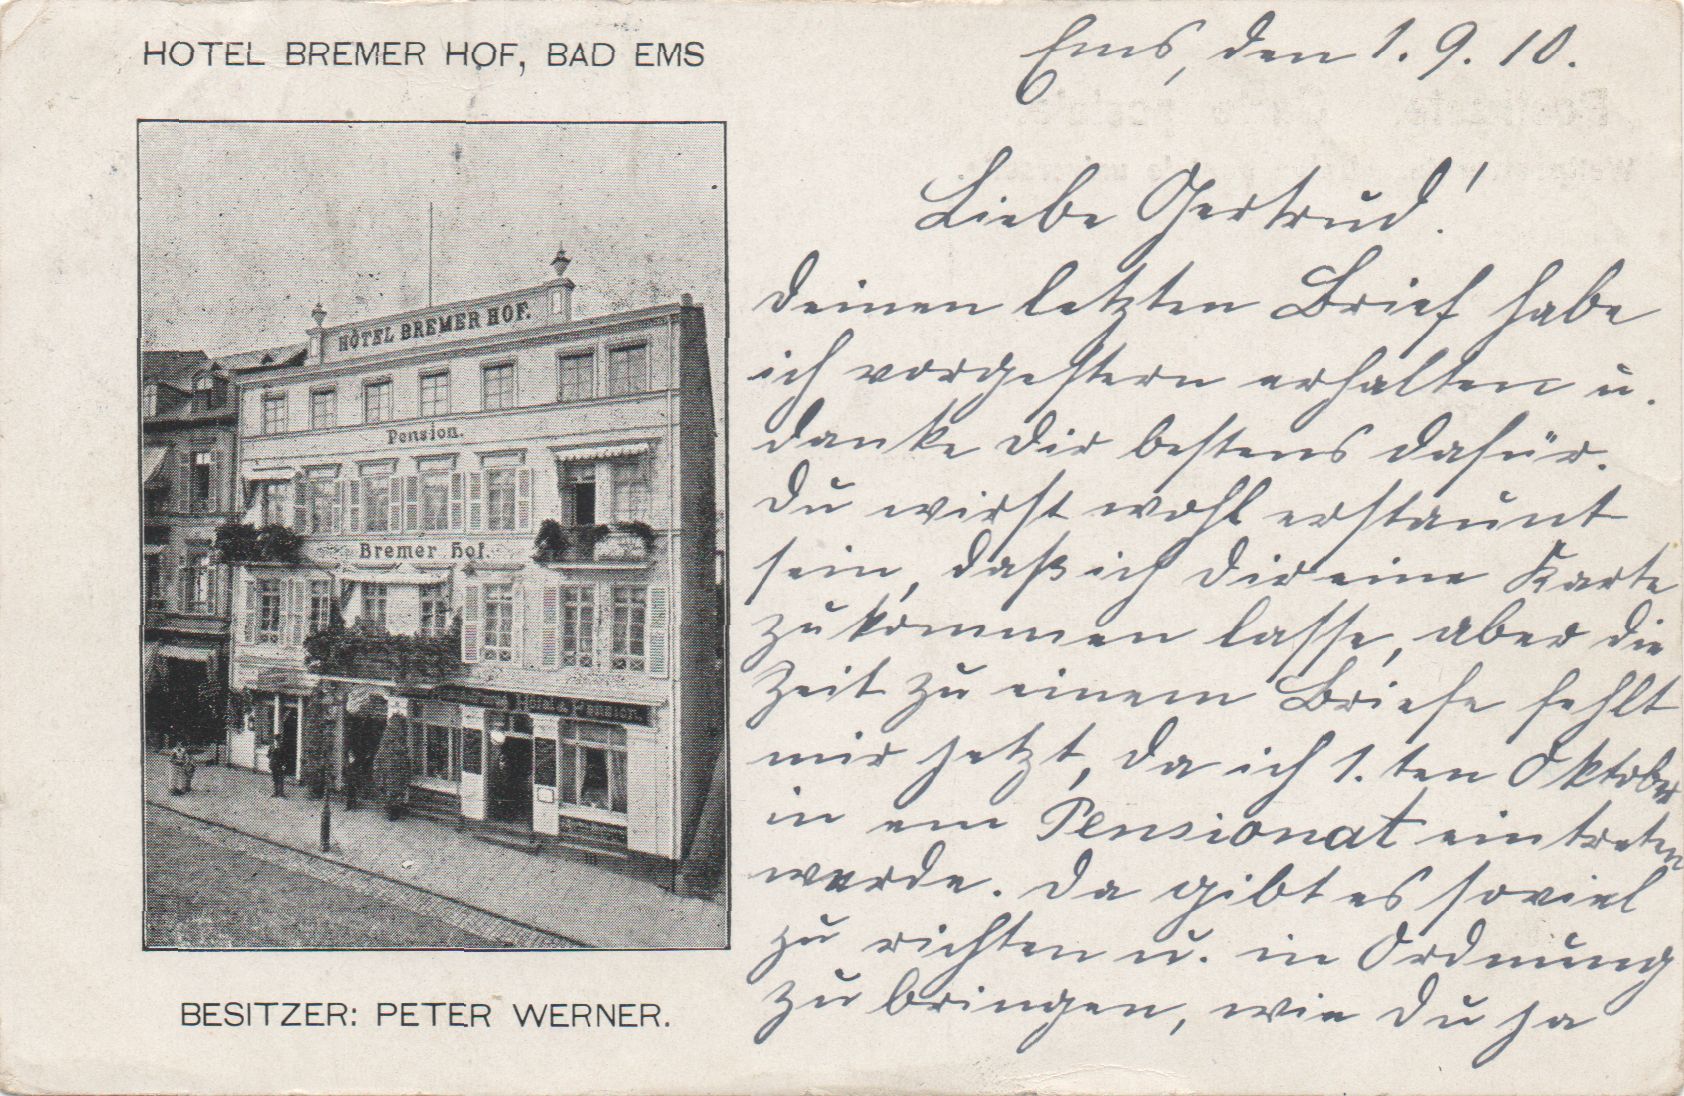 HOTEL BREMER HOF, BAD EMS
HOTEL BREMER HOF.
Pension.
Bremer Hof.
Hotel & Pension.
BESITZER: PETER WERNER.
Ems, den 1. 9. 10.
Liebe Gertrud!
Deinen letzten Brief habe
ich vorgestern erhalten u.
danke Dir bestens dafür.
Du wirst wohl erstaunt
sein, daß ich Dir eine Karte
zukommen lasse, aber die
Zeit zu einem Briefe fehlt
mir jetzt, da ich 1. ten Oktober
in ein Pensionat eintreten
werde. Da gibt es soviel
zu richten u. in Ordnung
zu bringen, wie Du ja